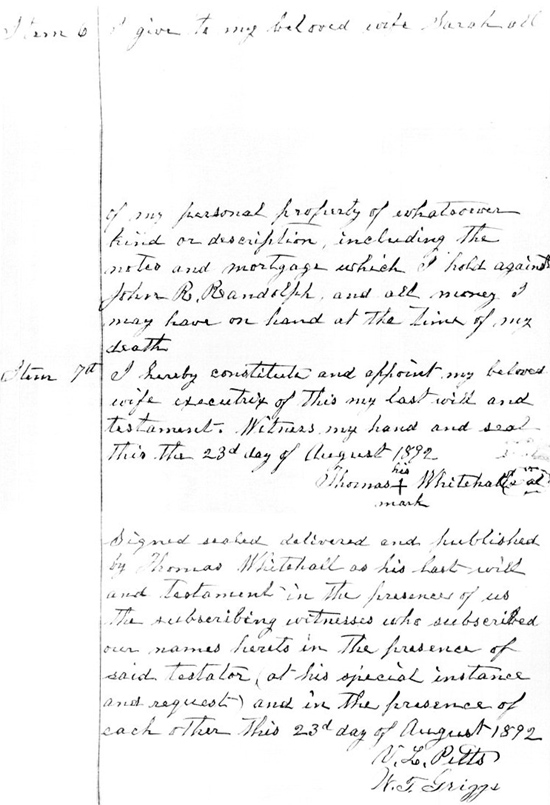 Item 6 I give to my beloved wife Sarah all
of my personal property of whatsoever
kind or description, including the
notes and mortgage which I hold against
John R. Randolph, and all money I
may have on hand at the time of my
death
Item 7th I hereby constitute and appoint my beloved
wife executrix of this my last will and
testament. Witness my hand and seal
this the 23d day of August 1892
his
Thomas + Whitehall (seal)
mark
Signed sealed delivered and published
by Thomas Whitehall as his last will
and testament in the presence of us
the subscribing witnesses who subscribed
our names hereto in the presence of
said testator (at his special instance
and request) and in the presence of
each other this 23d day of August 1892
V. L. Pitts
W. T. Griggs